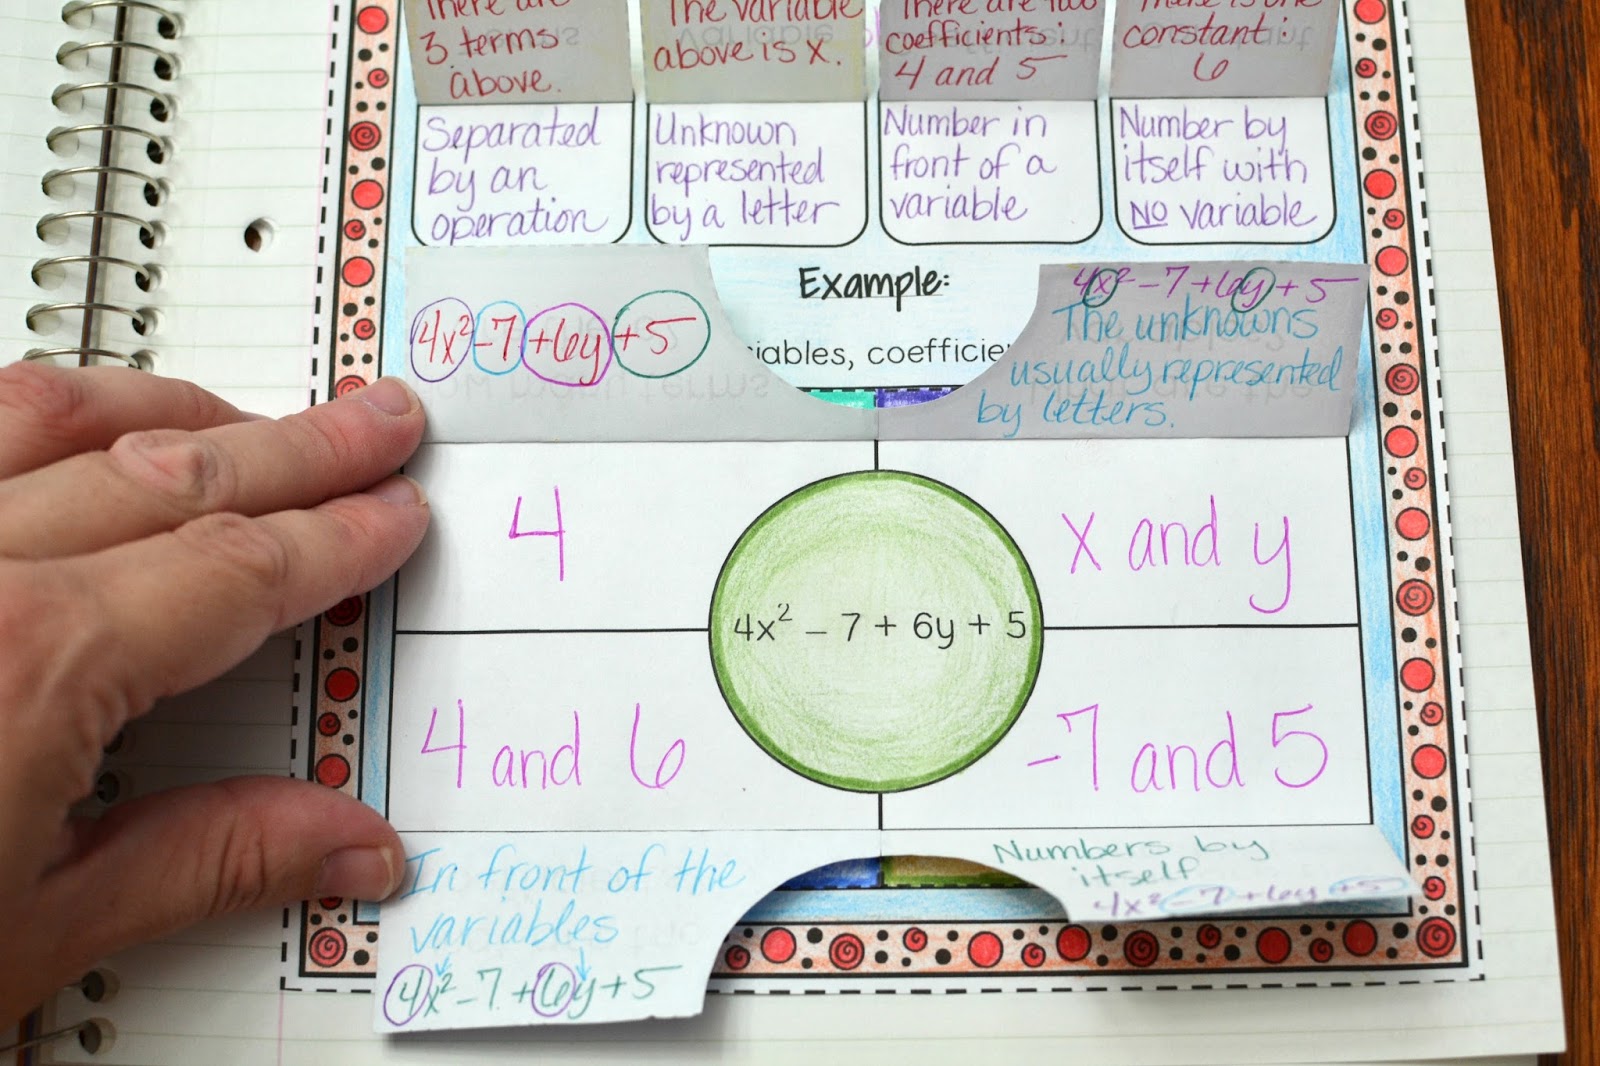 There are
3 terms
above.
The variable
above is x.
There are two
coefficients:
4 and 5
constant:
6
Separated
by an
operation
Unknown
represented
by a letter
Number in
front of a
variable
Number by
itself with
NO variable
Example:
iables, coefficie
4x² -7 +6y +5
4x² - 7 + 6y + 5
The unknowns
usually represented
by letters.
4
x and y
4x² – 7 + 6y + 5
4 and 6
-7 and 5
In front of the
variables
4x² - 7 + 6y + 5
Numbers by
itself
4x² - 7 + 6y + 5